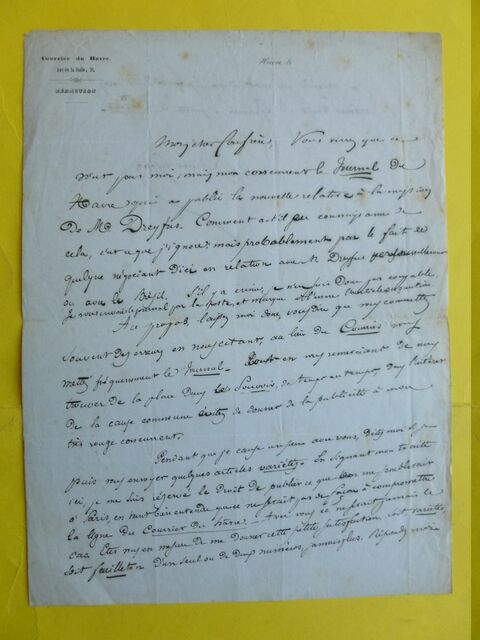 Courrier du Havre.
RÉDACTION
Havre le
Mon cher Confrère, Vous verrez que ce
n'est pas moi, mais mon concurrent le Journal du
Havre qui a publié la nouvelle relative à la mission
De Mr Dreyfus. Comment a-t-il pu connaissance de
cela, c'est ce que j'ignore; mais probablement par le fait de
quelque négociant d'ici en relation avec Mr Dreyfus
ou avec le Brésil. S'il y a erreur, je n'en suis Donc pas coupable.
Je vous envoie le journal par la poste, et marque
A ce propos, laissez moi donc vous dire que vous commettez
souvent des erreurs en nous citant, au lieu du Courrier vous
mettez fréquemment le Journal. Tout en vous remerciant de nous
trouver de la place dans le de temps en temps, dans l'intérêt
de la cause commune évitez de donner de la publicité à mon
très rouge concurrent.
Pendant que je cause un peu avec vous, dites moi si je
puis vous envoyer quelques articles variétés. En signant mon traité
ici, je me suis réservé le Droit de publier ce que bon me semblerait
à Paris, en tant bien entendu que ce ne serait pas de façon à compromettre
la ligne du Courrier du Havre. Avec vous ce ne serait jamais le
cas. Etes vous en mesure de me donner cette petite satisfaction, soit variétés,
soit feuilleton d'un seul ou de deux numéros, jamais plus. Répondez moi